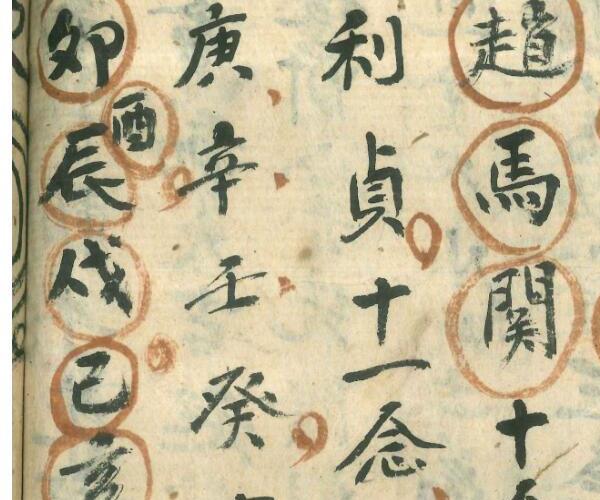 趙馬関十
利貞十一念
庚辛壬癸
卯酉辰戌巳亥